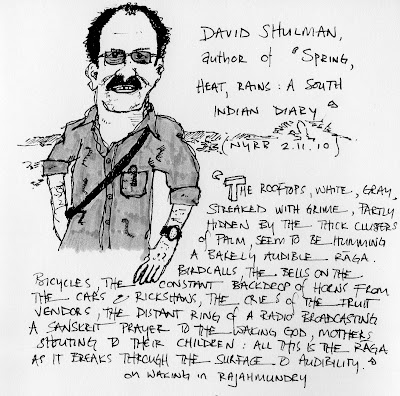 DAVID SHULMAN,
author of "SPRING,
HEAT, RAINS: A SOUTH
INDIAN DIARY"
(NYRB 2.11.10)
"THE ROOFTOPS, WHITE, GRAY,
STREAKED WITH GRIME, PARTLY
HIDDEN BY THE THICK CLUSTERS
OF PALM, SEEM TO BE HUMMING
A BARELY AUDIBLE RĀGA.
BIRDCALLS, THE BELLS ON THE
BICYCLES, THE CONSTANT BACKDROP OF HORNS FROM
THE CARS & RICKSHAWS, THE CRIES OF THE FRUIT
VENDORS, THE DISTANT RING OF A RADIO BROADCASTING
A SANSKRIT PRAYER TO THE WAKING GOD, MOTHERS
SHOUTING TO THEIR CHILDREN: ALL THIS IS THE RĀGA
AS IT BREAKS THROUGH THE SURFACE TO AUDIBILITY."
on WAKING in RAJAHMUNDRY